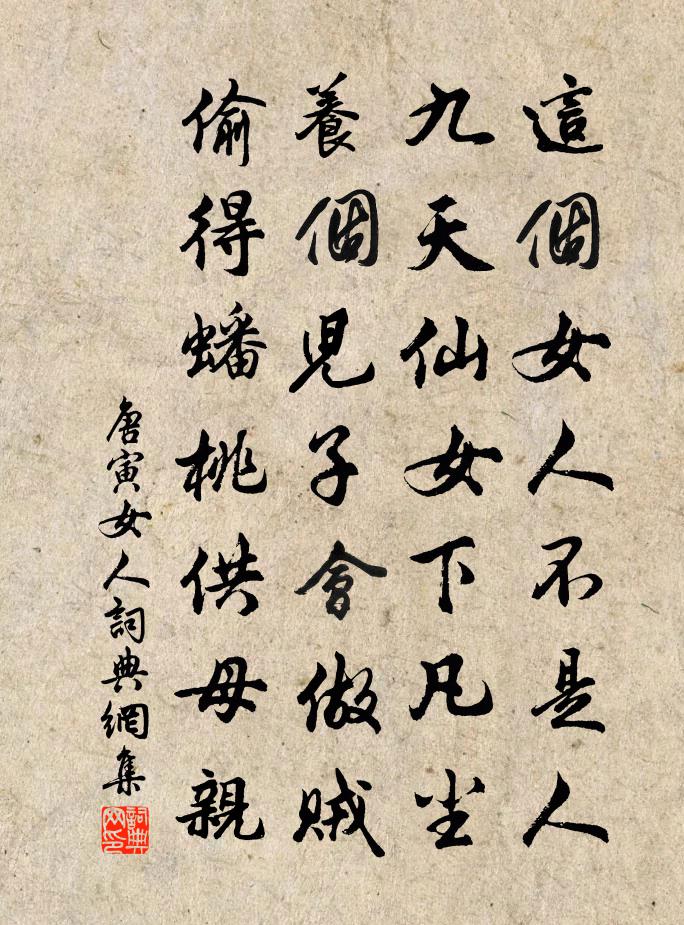 這個女人不是人
九天仙女下凡尘
養個兒子會做賊
偷得蟠桃供母親
唐寅女人詞典網集
詞典网印